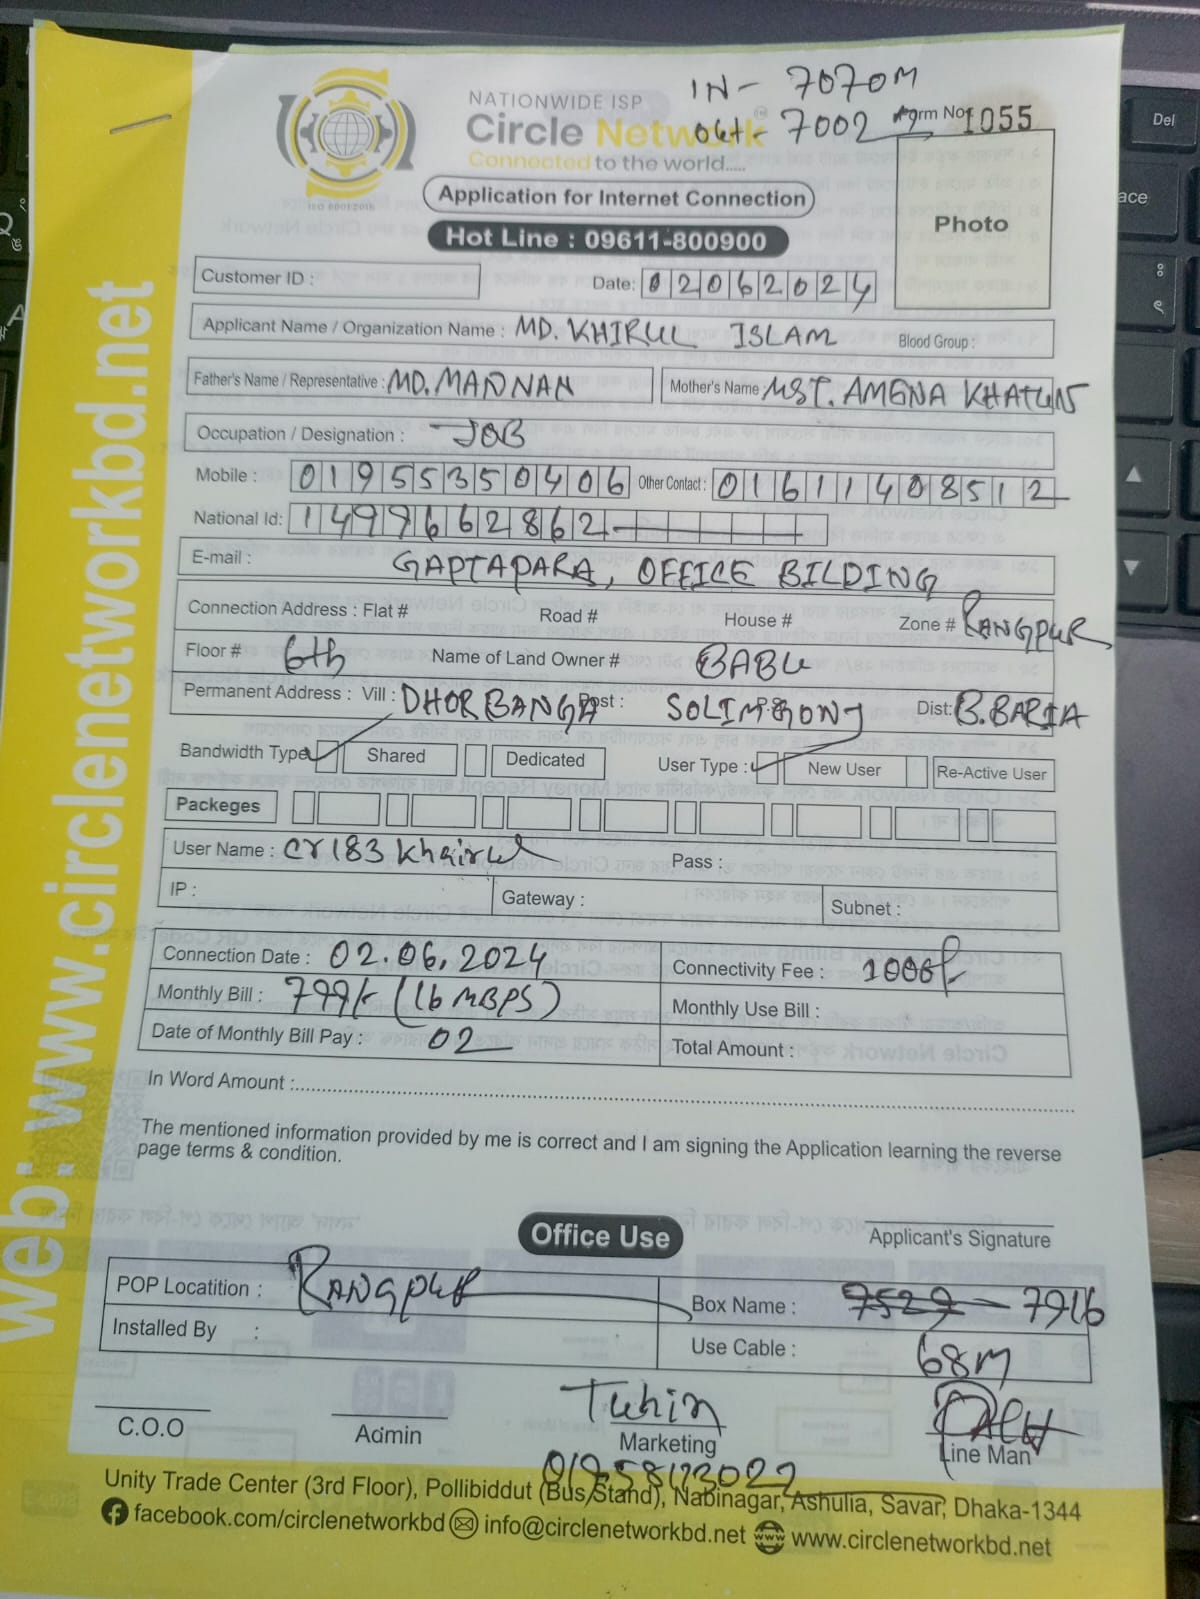 IN- 7070M
NATIONWIDE ISP
Circle Network
Out- 7002
Form No: 1055
Connected to the world.....
ISO 9001:2015
Application for Internet Connection
Photo
Hot Line : 09611-800900
Customer ID :
Date: 02062024
Applicant Name / Organization Name : MD. KHIRUL ISLAM Blood Group :
Father's Name / Representative : MD. MANNAN Mother's Name MST. AMENA KHATUN
Occupation / Designation : JOB
Mobile : 01955350406 Other Contact : 01611408512
National Id: 1499662862
E-mail : GAPTAPARA, OFFICE BILDING
Connection Address : Flat # Road # House # Zone # RANGPUR
Floor # 6th Name of Land Owner # BABU
Permanent Address : Vill : DHORBANGA Post : Dist: B.BARIA
Bandwidth Type Shared Dedicated User Type : New User Re-Active User
Packeges
User Name : cr183 khairul Pass :
IP : Gateway : Subnet :
Connection Date : 02.06.2024 Connectivity Fee : 1000/-
Monthly Bill : 799/- (16 MBPS) Monthly Use Bill :
Date of Monthly Bill Pay : 02 Total Amount :
In Word Amount :
The mentioned information provided by me is correct and I am signing the Application learning the reverse
page terms & condition.
Office Use
Applicant's Signature
POP Locatition : RANGPUR Box Name : 7529 - 7916
Installed By : Use Cable : 68M
Tuhin
C.O.O Admin Marketing Line Man
Unity Trade Center (3rd Floor), Pollibiddut (Bus Stand), Nabinagar, Ashulia, Savar, Dhaka-1344
facebook.com/circlenetworkbd info@circlenetworkbd.net www.circlenetworkbd.net
web: www.circlenetworkbd.net
Del